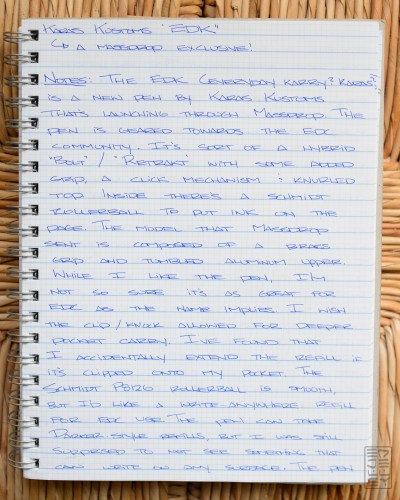 Karas Kustoms "EDK"
↳ A Massdrop Exclusive!
Notes: The EDK (Everyday Karry? Karas?)
is a new pen by Karas Kustoms
that's launching through Massdrop. The
pen is geared towards the EDC
community. It's sort of a hybrid
"Bolt" / "Retrakt" with some added
grip, a click mechanism & knurled
top. Inside there's a Schmidt
rollerball to put ink on the
page. The model that Massdrop
sent is composed of a brass
grip and tumbled aluminum upper.
While I like the pen, I'm
not so sure it's as great for
EDC as the name implies. I wish
the clip/knock allowed for deeper
pocket carry. I've found that
I accidentally extend the refill if
it's clipped onto my pocket. The
Schmidt P8126 rollerball is smooth,
but I'd like a write-anywhere refill
for EDC use. The pen can take
Parker-style refills, but I was still
surprised to not see something that
can write on any surface. The pen